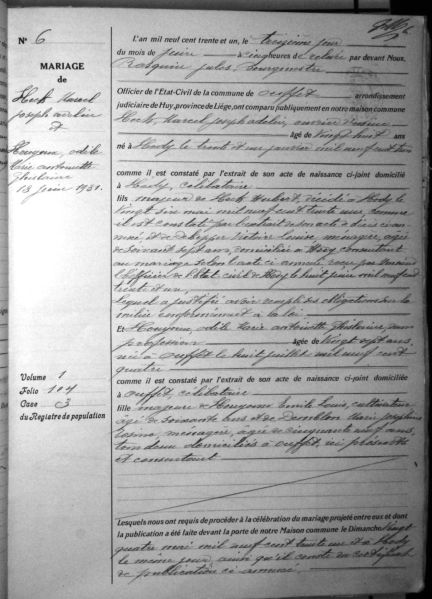 N° 6
MARIAGE
de
Herk Marcel
Joseph
et
Houyoux, odile
Marie antoinette
Ghislaine
13 juin 1931.
Volume 1
Folio 104
Case 3
du Registre de population
L'an mil neuf cent trente et un, le treizième jour
du mois de juin à heures de par devant Nous,
jules, bourgmestre
Officier de l'Etat-Civil de la commune de ouffet arrondissement
judiciaire de Huy, province de Liége, ont comparu publiquement en notre maison commune
Herk, Marcel, joseph
âgé de vingt huit ans
né à Hody le trente et un janvier mil neuf cent trois
comme il est constaté par l'extrait de son acte de naissance ci-joint domicilié
à Hody, célibataire
fils majeur de Herk Hubert, décédé à Hody le
vingt six mai mil neuf cent trente un, comme
il est constaté par l'extrait de son acte de décès ci
annexé, et de Victoire Louise, ménagère, agée
de soixante sept ans, domiciliée à Hody, consentant
au mariage selon l'acte ci annexé reçu par Monsieur
l'officier de l'Etat civil de Hody le huit juin mil neuf cent
trente et un,
Lequel a justifié avoir rempli ses obligations sur la
milice conformément à la loi
Et Houyoux, odile Marie antoinette Ghislaine, sans
profession âgée de vingt sept ans,
née à ouffet le huit juillet mil neuf cent
quatre
comme il est constaté par l'extrait de son acte de naissance ci-joint domiciliée
à ouffet, célibataire
fille majeure de Houyoux Emile Louis, cultivateur
agé de soixante ans et de Marie joséphine
ménagère, agée de cinquante neuf ans,
tous deux domiciliés à ouffet, ici présents
et consentant
Lesquels nous ont requis de procéder à la célébration du mariage projeté entre eux et dont
la publication a été faite devant la porte de notre Maison commune le Dimanche vingt
quatre mai mil neuf cent trente un et à Hody
le même jour, ainsi qu'il conste du certificat
de publication ci annexé.